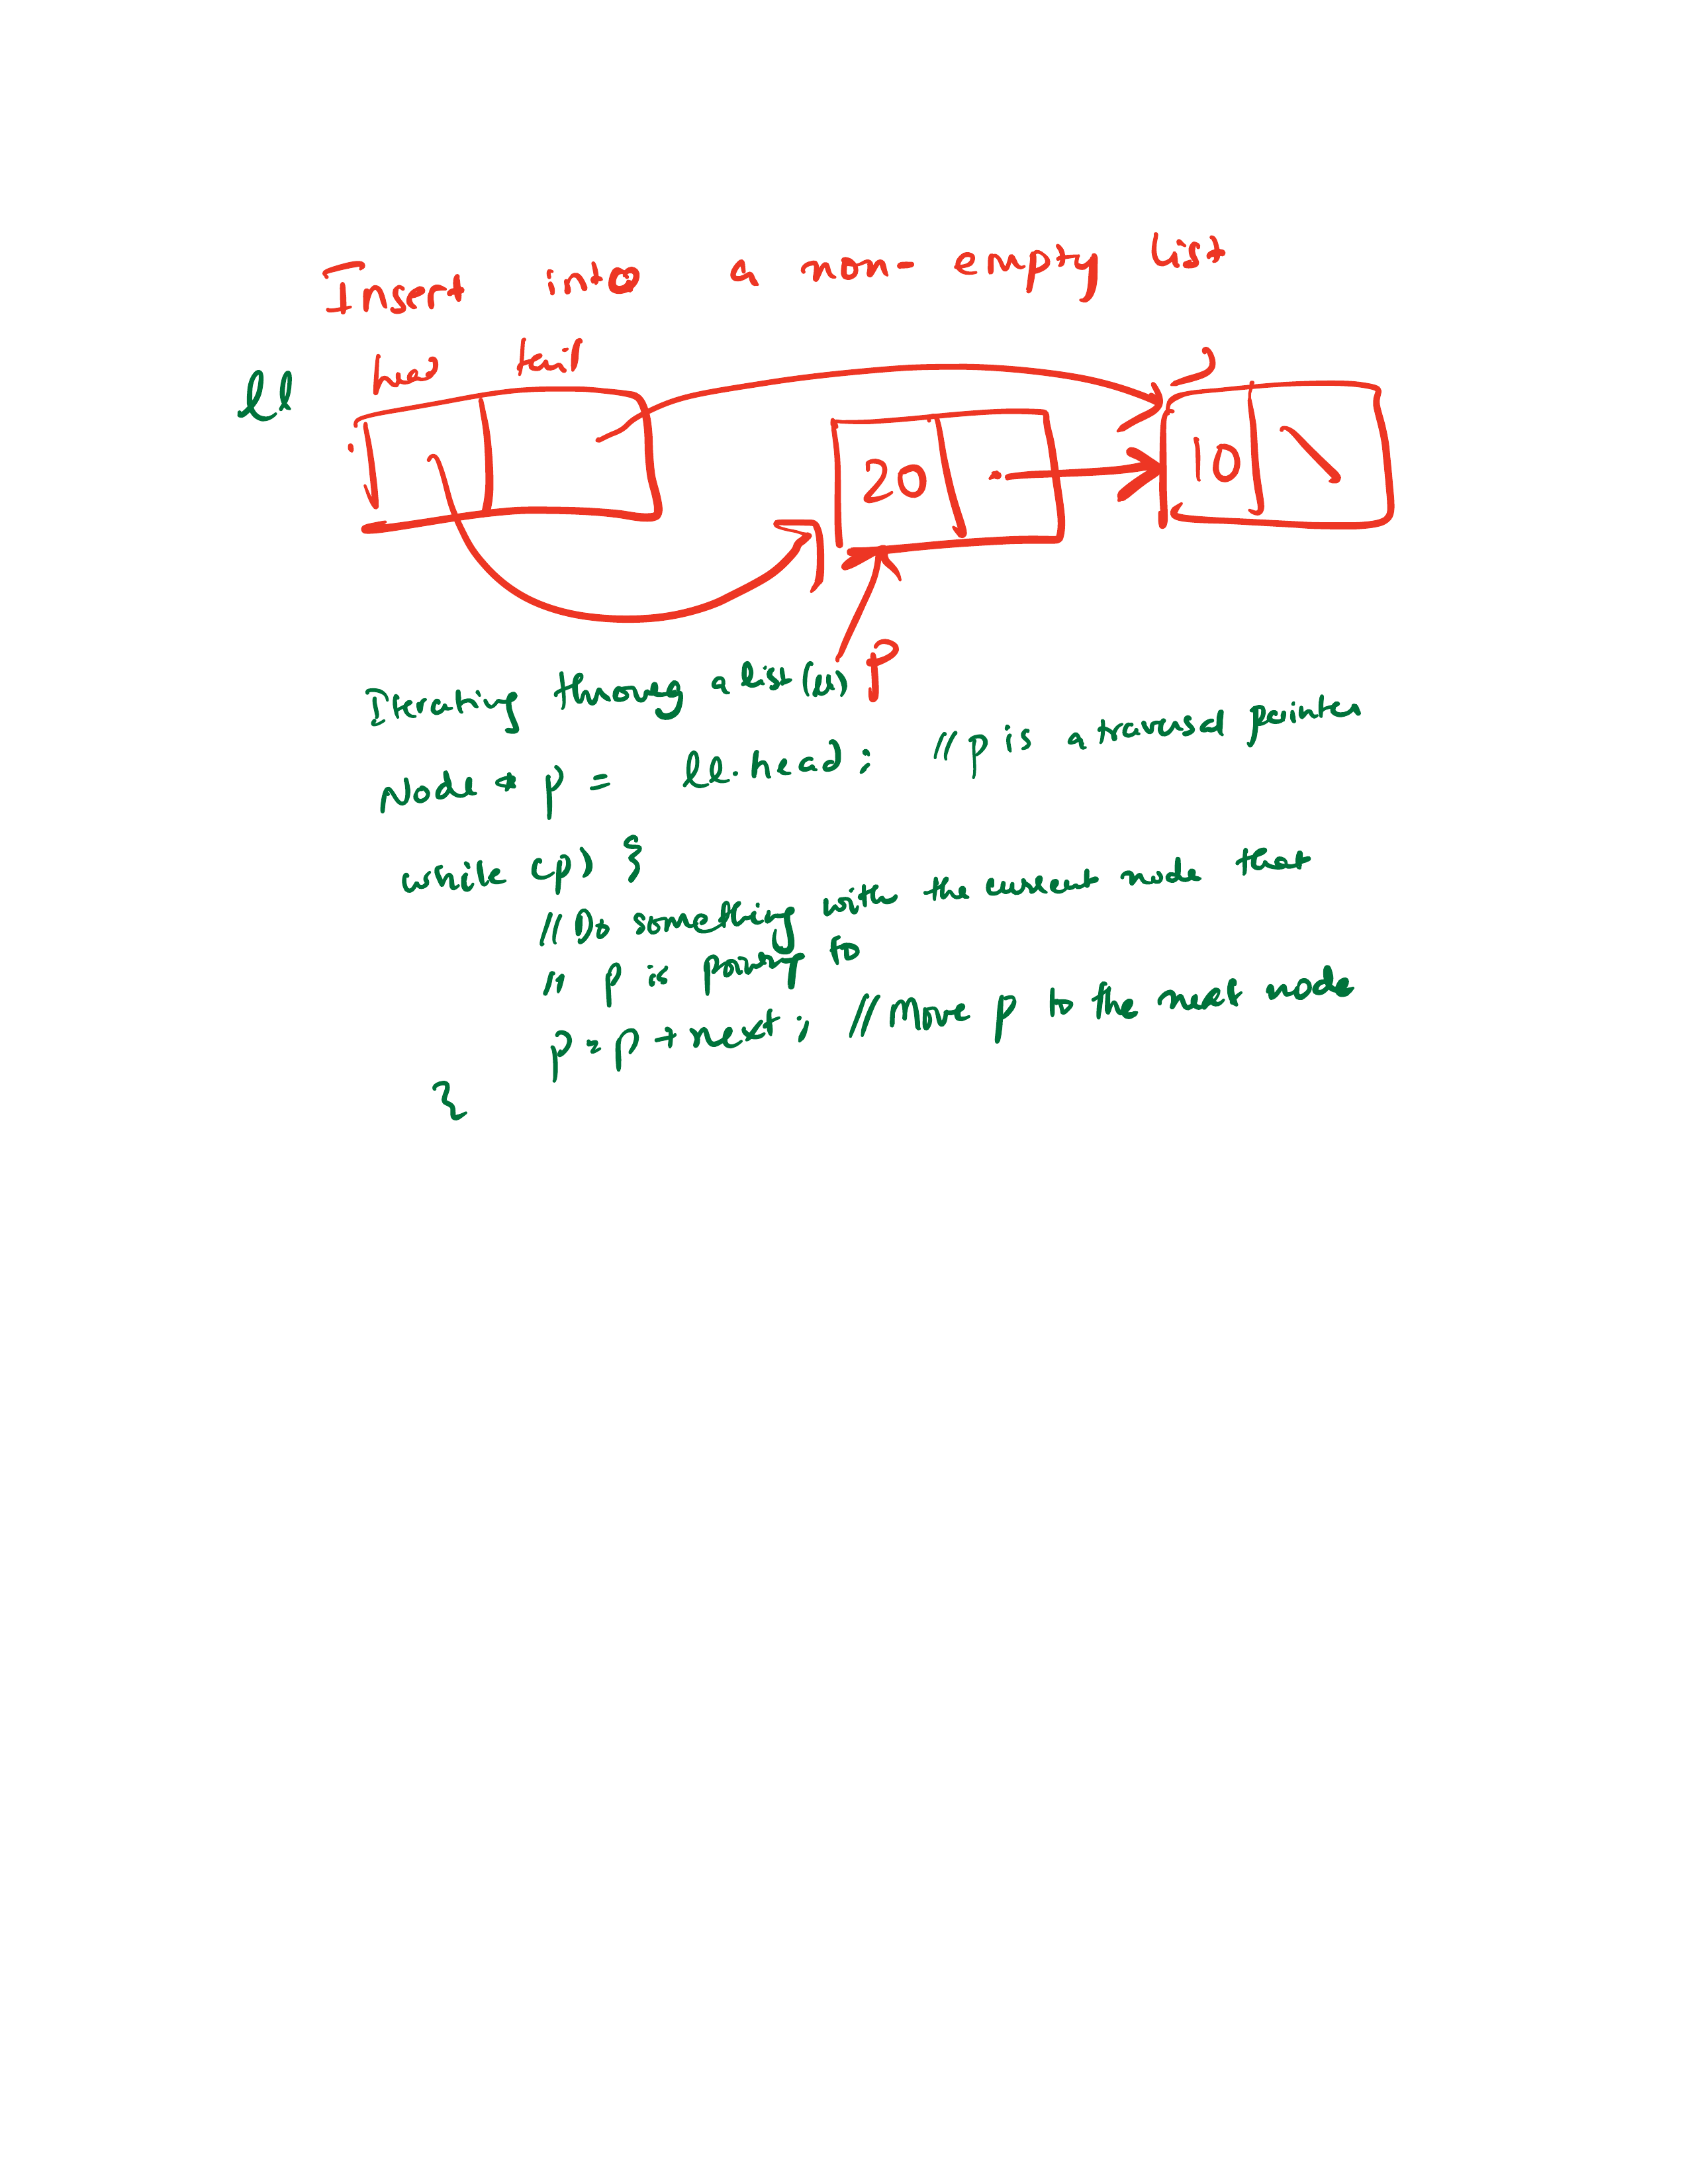 Insert into a non-empty list
ll head tail
20
10
p
Iterating through a list (ll)
Node * p = ll.head; // p is a traversal pointer
while (p) {
// Do something with the current node that
// p is pointing to
p = p → next; // Move p to the next node
}